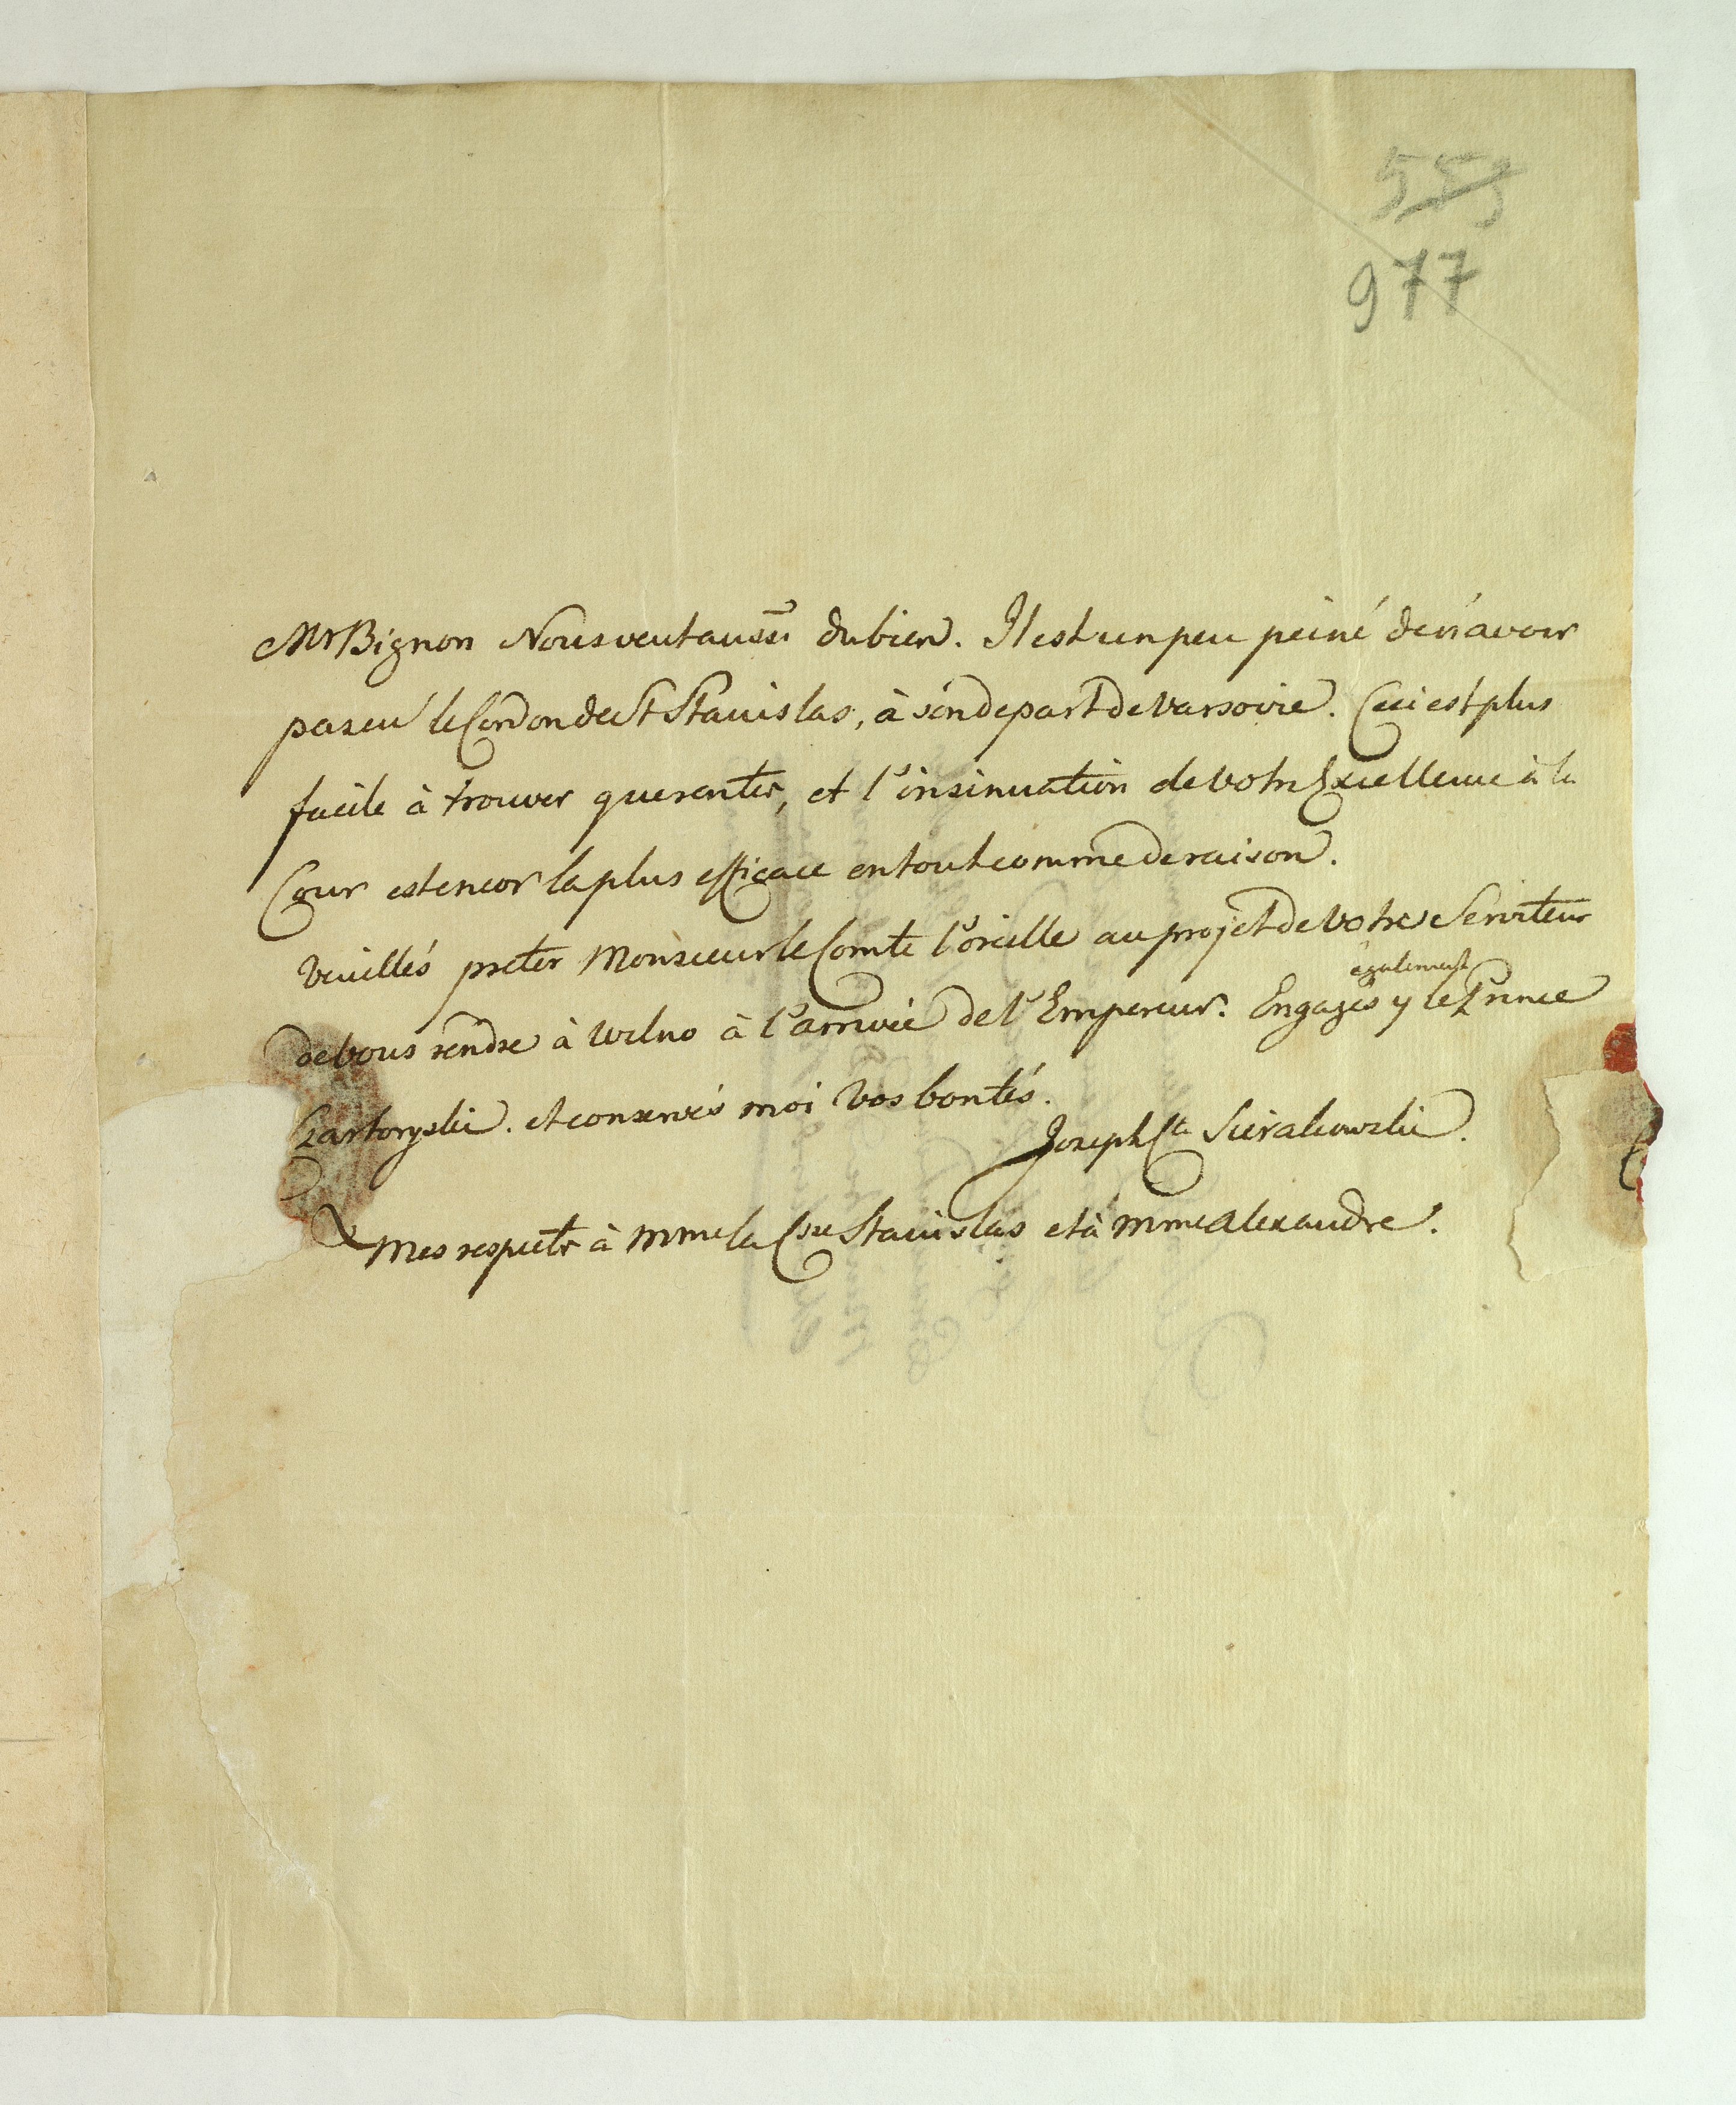 553
977
Mr Bignon Nous veut aussi du bien. Il est un peu peiné de n'avoir
pas eu le Cordon de St Stanislas, à son depart de Varsovie. Ceci est plus
facile à trouver que rentes, et l'insinuation de Votre Excellence à la
Cour est encor la plus efficace en tout comme de raison.
Veuillés preter Monsieur le Comte l'oreille au projet de Votre Serviteur
également
de Vous rendre à Wilno à l'arrivée de l'Empereur. Engagés y le Prince
Czartoryski. et conservés moi Vos bontés.
Joseph Cte Sierakowski.
Mes respects à Mme la Csse Stanislas et à Mme Alexandre.